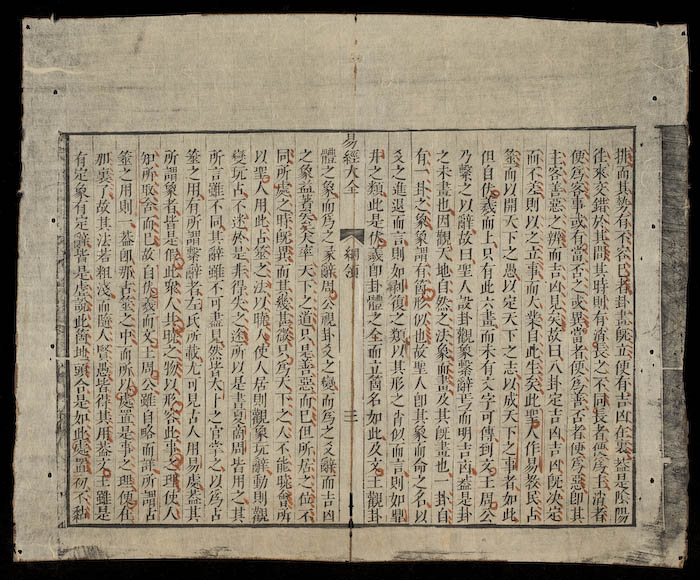 推而其勢有不容已者卦畫既立便有吉凶在裏蓋是陰陽
徃來交錯於其間其時則有消長之不同長者便為主消者
便為客事或有當否之或異當者便為善否者便為惡即其
主客善惡之辨而吉凶見矣故曰八卦定吉凶吉凶既決定
而不差則以之立事而大業自此生矣此聖人作易教民占
筮而以開天下之愚以定天下之志以成天下之事者如此
但自伏羲而上只有此六畫而未有文字可傳到文王周公
乃繫之以辭故曰聖人設卦觀象繫辭焉而明吉凶蓋是卦
之未畫也因觀天地自然之法象而畫及其既畫也一卦自
有一卦之象象謂有箇形似也故聖人即其象而命之名以
爻之進退而言則如剝復之類以其形之肖似而言則如鼎
井之類此是伏羲即卦體之全而立箇名如此及文王觀卦
易經大全 綱領 三
體之象而為之彖辭周公視卦爻之變而為之爻辭而吉凶
之象益著矣大率天下之道只是善惡而已但所居之位不
同所處之時既異而其幾甚微只為天下之人不能曉會所
以聖人用此占筮之法以曉人使人居則觀象玩辭動則觀
變玩占不迷於是非得失之途所以是書夏商周皆用之其
所言雖不同其辭雖不可盡見然皆太卜之官掌之以為占
筮之用有所謂繇辭者左氏所載尤可見古人用易處蓋其
所謂象者皆是假此眾人共曉之物以形容此事之理使人
知所取舍而已故自伏羲而文王周公雖自略而詳所謂占
筮之用則一蓋即那占筮之中而所以處置是事之理便在
那裏了故其法若粗淺而隨人賢愚皆得其用蓋文王雖是
有定象有定辭皆是虛說此箇地頭合是如此處置初不黏